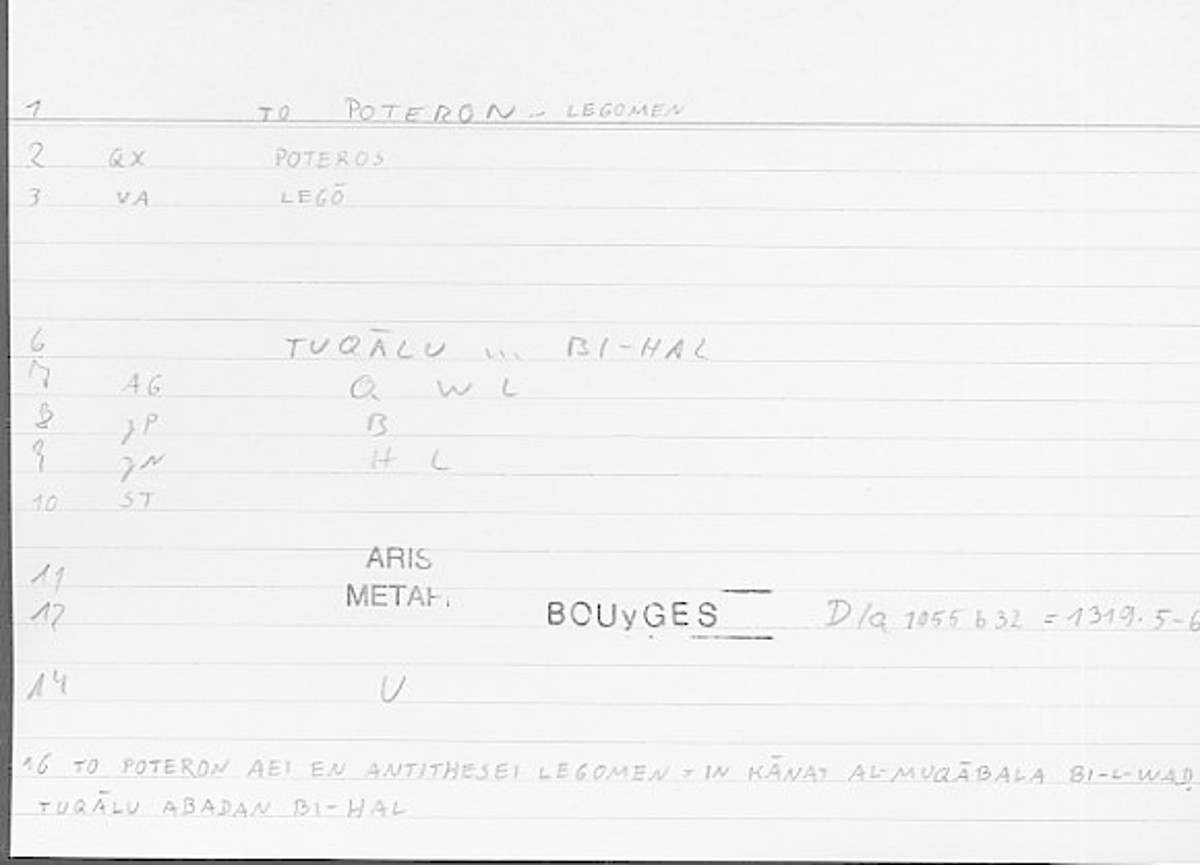 1 TO POTERON - LEGOMEN
2 QX POTEROS
3 VA LEGŌ
6 TUQĀLU ... BI-HAL
7 AG Q W L
8 gP B
9 gN H L
10 ST
11 ARIS
METAF.
12 BOUyGES D/Q 1055 b 32 = 1319.5-6
14 U
16 TO POTERON AEI EN ANTITHESEI LEGOMEN = IN KĀNAT AL-MUQĀBALA BI-L-WAḌ
TUQĀLU ABADAN BI-HAL